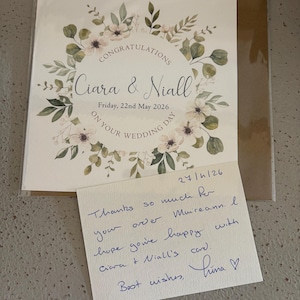 CONGRATULATIONS
Ciara & Niall
Friday, 22nd May 2026
ON YOUR WEDDING DAY
27/4/26
Thanks so much for
your order Muireann I
hope you're happy with
Ciara + Niall's card
Best wishes,